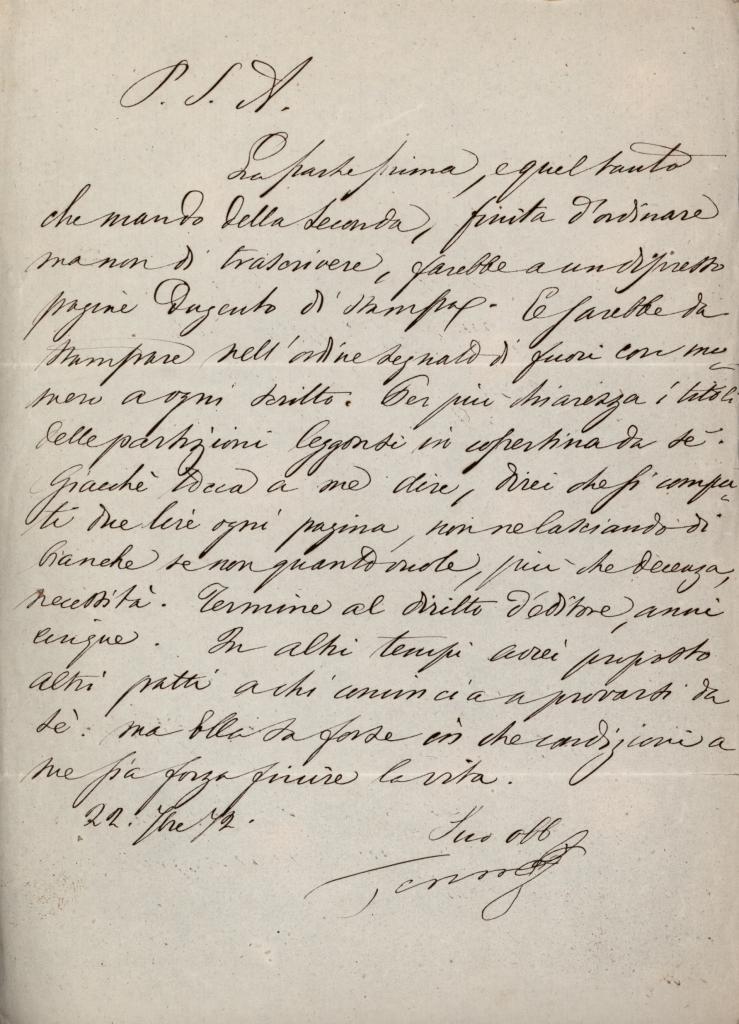 P. S. A.
La parte prima, e quel tanto
che mando della seconda, finita d'ordinare
ma non di trascrivere, sarebbe a un dipresso
pagine dugento di stampa. E sarebbe da
stampare nell'ordine segnato di fuori con nu-
mero a ogni scritto. Per più chiarezza i titoli
delle partizioni leggonsi in copertina da sè.
Giacchè tocca a me dire, direi che si compu-
ti due lire ogni pagina, non ne lasciando di
bianche se non quanto vuole, più che decenza,
necessità. Termine al diritto d'editore, anni
cinque. In altri tempi avrei proposto
altri patti a chi comincia a provarsi da
sè: ma Ella sa forse in che condizioni a
me sia forza finire la vita.
22. 7bre 72.
Suo obb